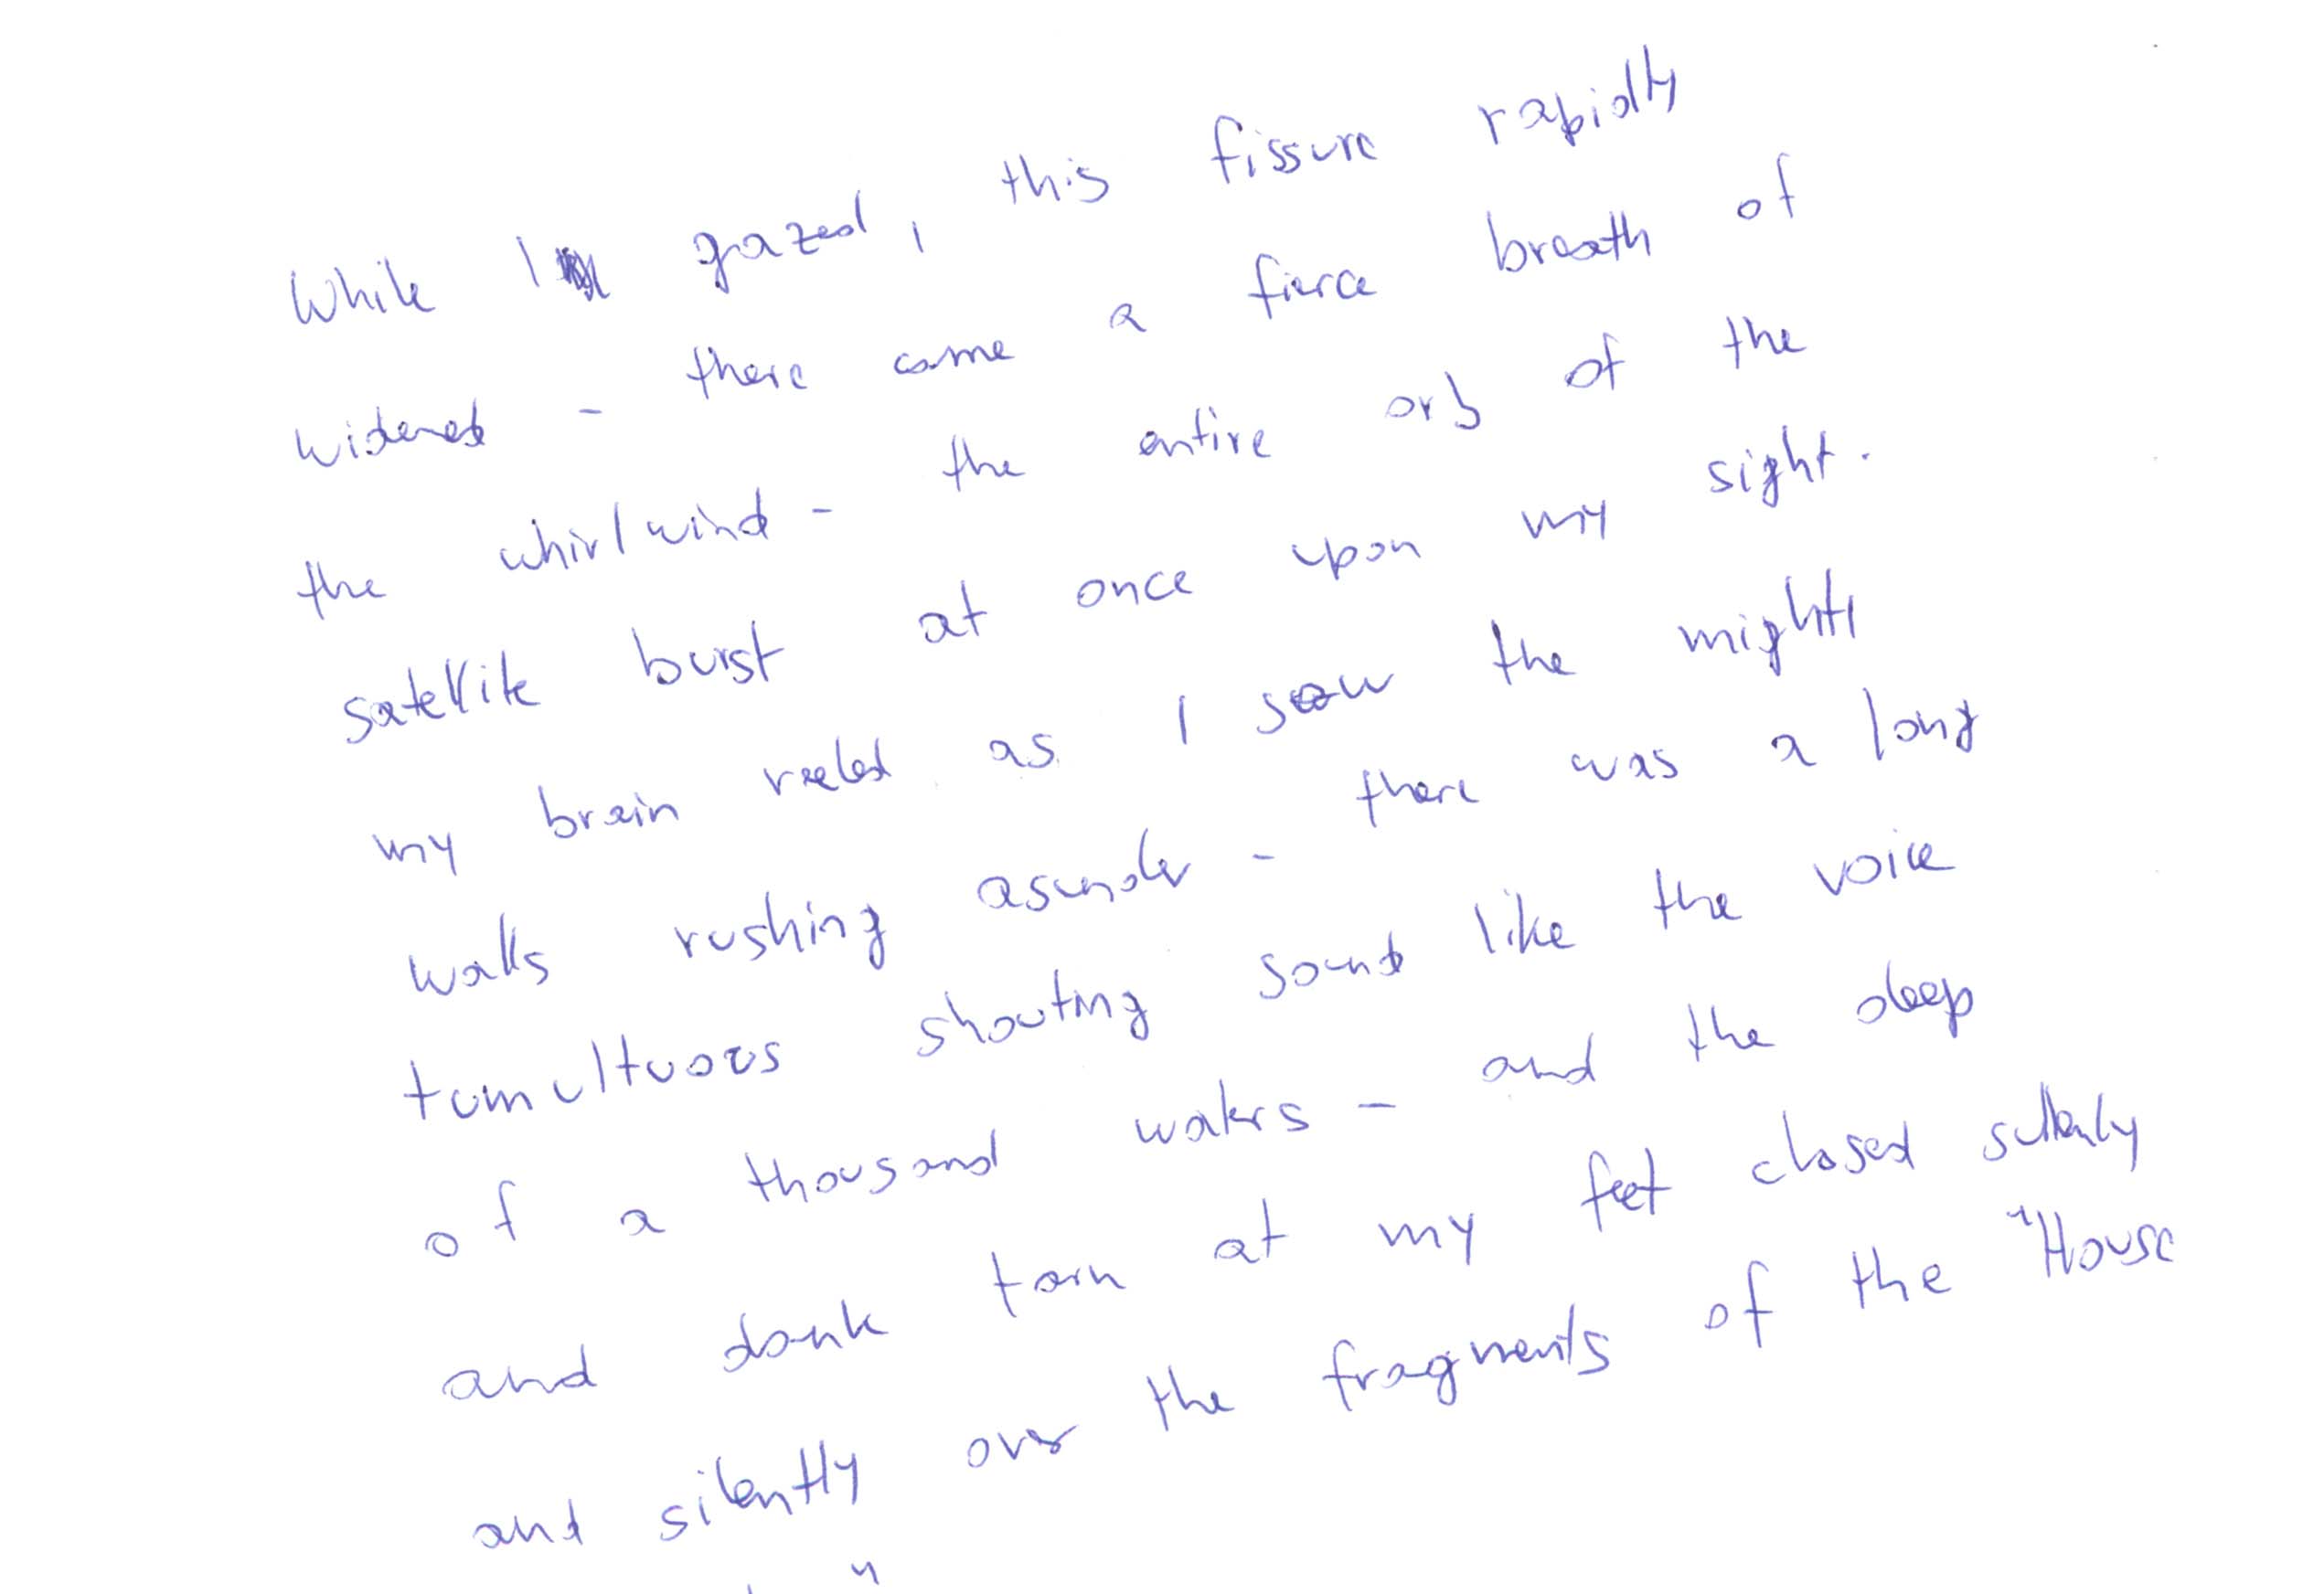 While I gazed, this fissure rapidly
widened - there came a fierce breath of
the whirlwind - the entire orb of the
satellite burst at once upon my sight.
my brain reeled as I saw the mighty
walls rushing asunder - there was a long
tumultuous shouting sound like the voice
of a thousand waters - and the deep
and dank tarn at my feet closed sullenly
and silently over the fragments of the "House
"